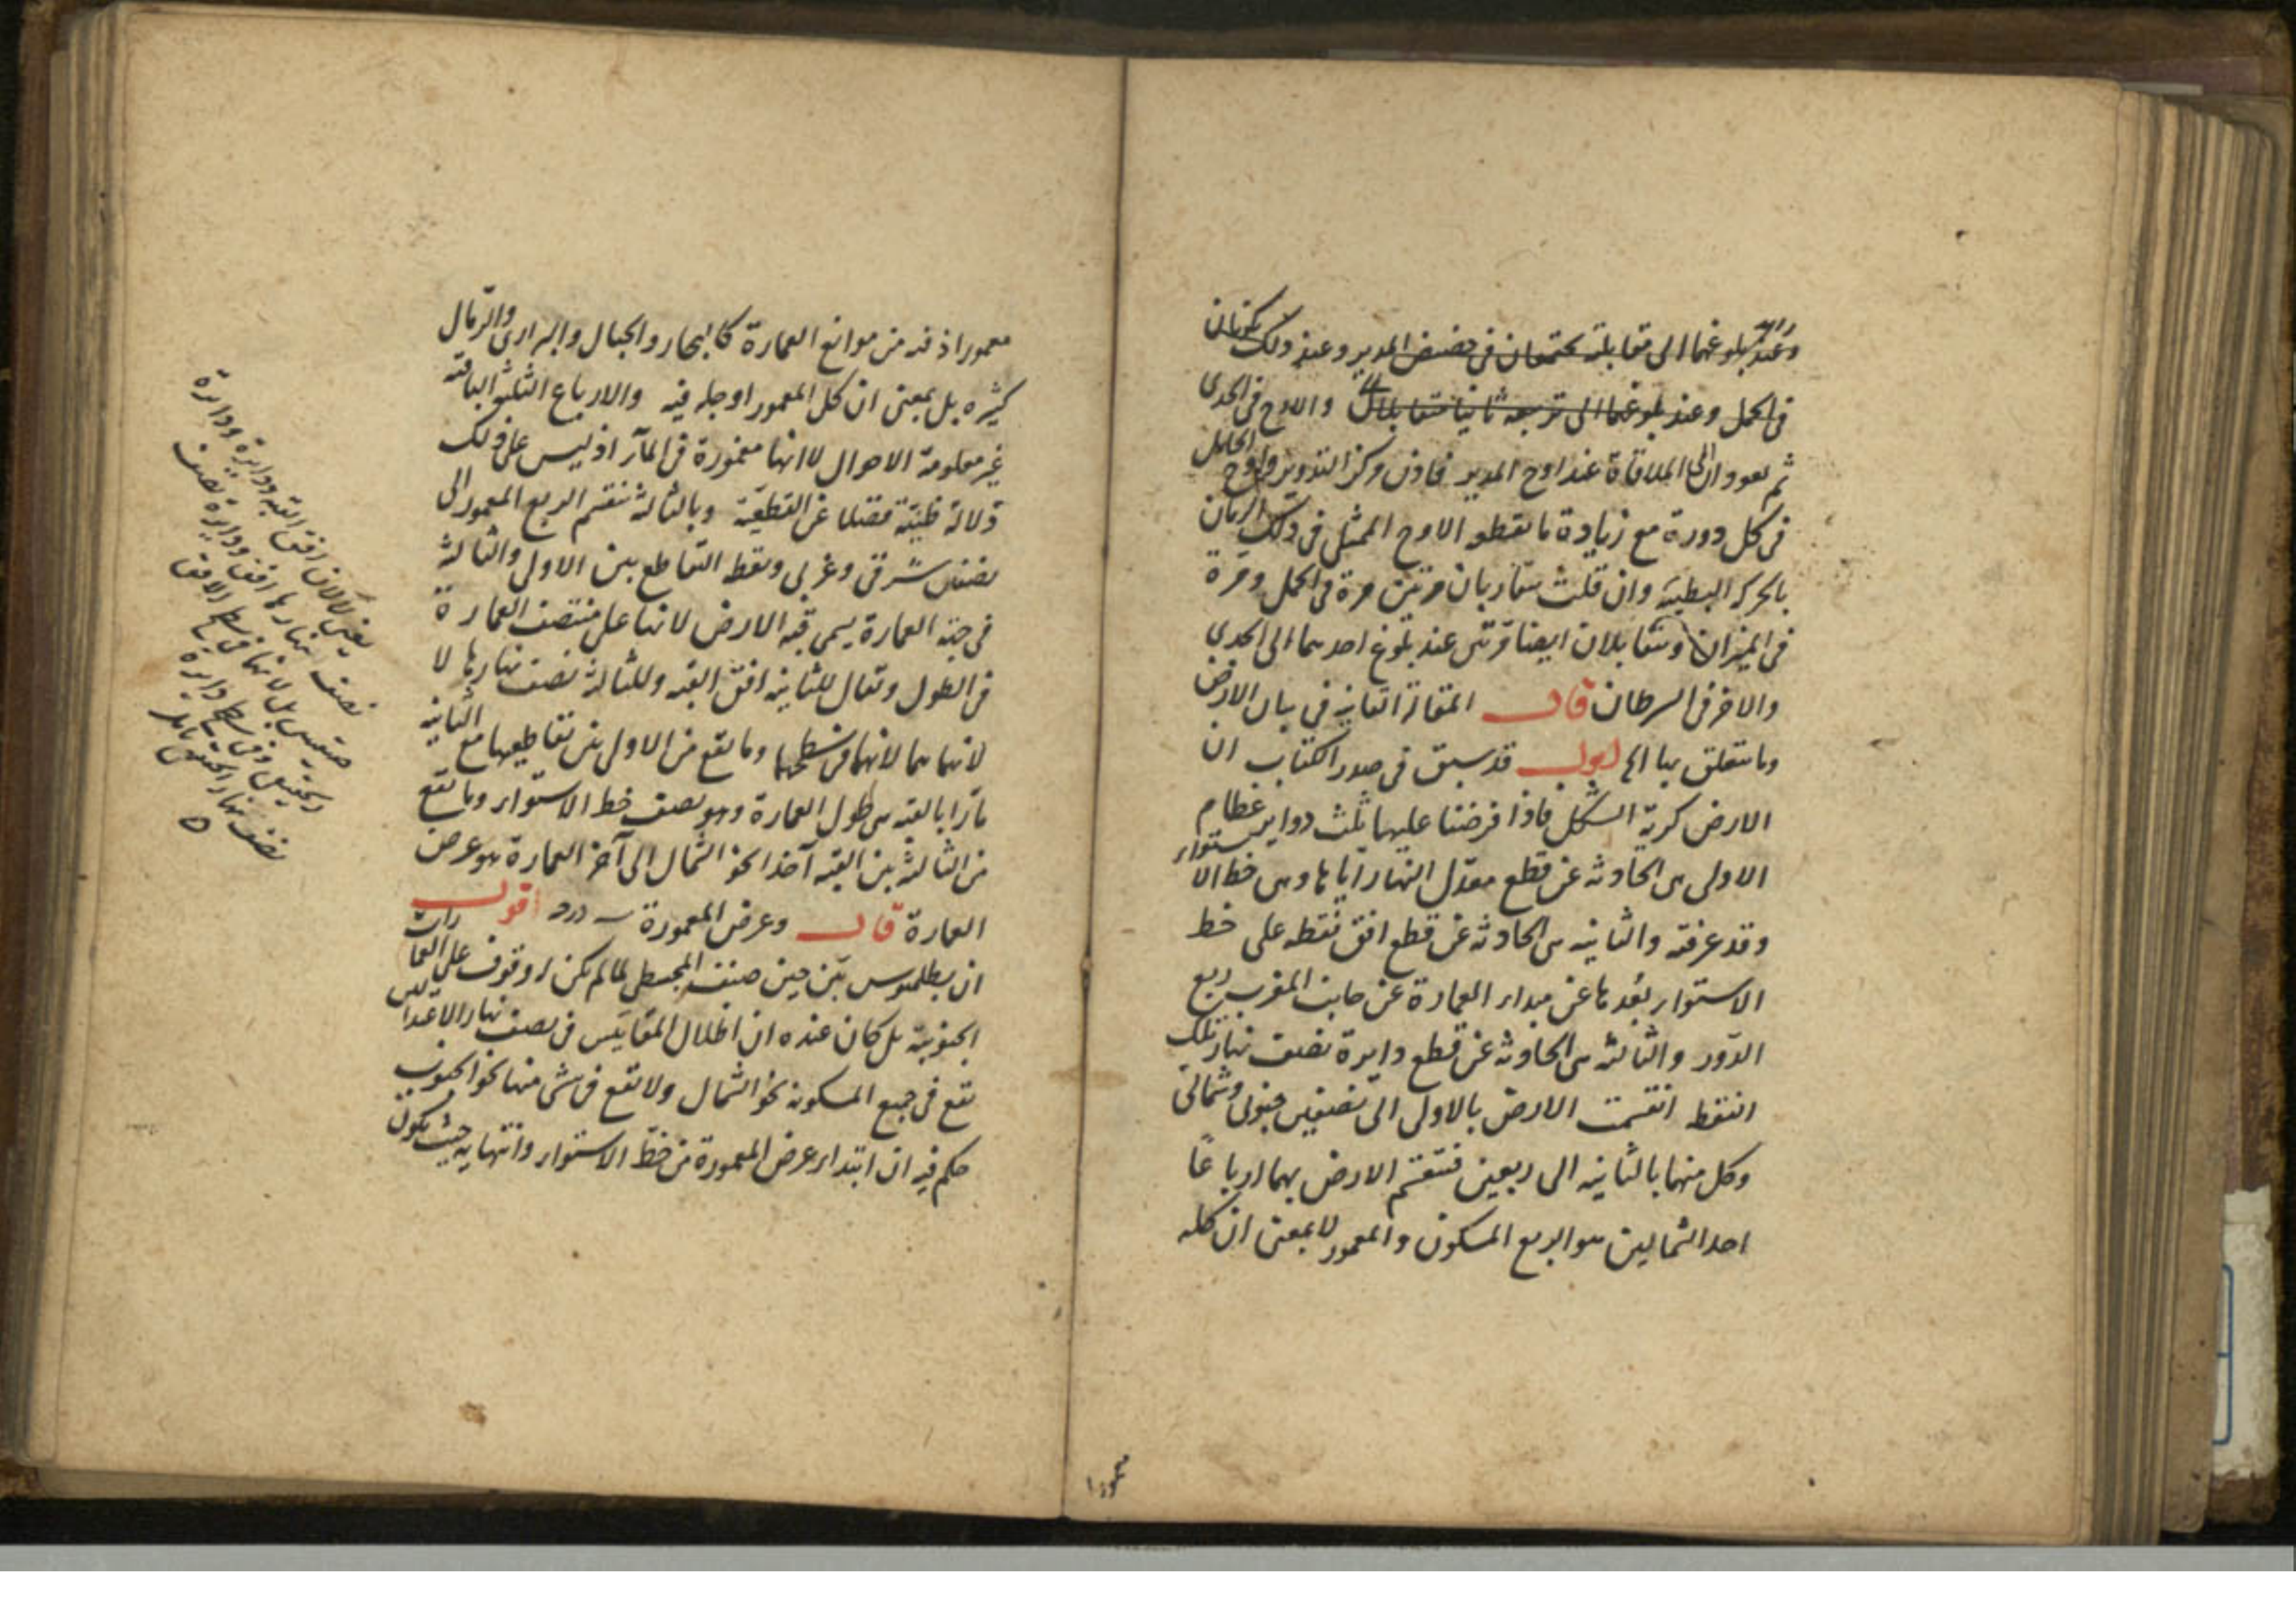 وعند بلوغهما الى مقابلته يجتمعان فى حضيض المدير وعند ذلك يكونان
فى الحمل وعند بلوغهما الى تربيعه ثانيا متقابلان والاوج فى الجدى
ثم يعودان الى الملاقاة عند اوج المدير فاذن مركز التدوير واوج الحامل
فى كل دورة مع زيادة ما يقطعه الاوج الممثل فى ذلك الزمان
بالحركة البطيئة وان قلت يتقاربان مرتين مرة فى الحمل ومرة
فى الميزان ويتقابلان ايضا مرتين عند بلوغ احدهما الى الجدى
والاخر فى السرطان قال المقالة الثانية فى بيان الارض
وما يتعلق بها الخ اقول قد سبق فى صدر الكتاب ان
الارض كرية الشكل فاذا فرضنا عليها ثلث دواير عظام
الاولى هى الحادثة عن قطع معدل النهار اياها وهى خط الاستواء
وقد عرفته والثانية هى الحادثة عن قطع افق نقطه على خط
الاستواء بُعدها عن مبداء العمارة عن جانب المغرب ربع
الدّور والثالثة هى الحادثة عن قطع دايرة نصف نهار تلك
النقط انقسمت الارض بالاولى الى نصفين جنوبى وشمالى
وكل منهما بالثانية الى ربعين فتنقسم الارض بهما ارباعًا
احد الشماليين هو الربع المسكون والمعمور لا بمعنى ان كله
معمورا
معمور اذ فيه من موانع العمارة كالبحار والجبال والبرارى والرّمال
كثيره بل بمعنى ان كل المعمور او جله فيه والارباع الثلثة الباقية
غير معلومة الاحوال لا انها مغمورة فى الماء اذ ليس على ذلك
دلالة ظنيّة فضلا عن القطعيّة وبالثالثة ينقسم الربع المعمور الى
نصفين شرقى وغربى ونقط التقاطع بين الاولى والثالثة
فى جهة العمارة يسمى قبة الارض لانها على منتصف العمارة
فى الطول ويقال للثانية افق القبه وللثالثة نصف نهارها لا
لانهما هما لانهما فى سطحهما وما يقع من الاولى بين تقاطعيها مع الثانية
مارّا بالقبه هى طول العمارة وهو نصف خط الاستواء وما يقع
من الثالثة بين القبه آخذا نحو الشمال الى آخر العمارة هو عرض
العمارة قال وعرض المعمورة اقول
ان بطلميوس بيّن حين صنف المجسطى لما لم يكن له وقوف على العمارات
الجنوبية بل كان عنده ان اظلال المقاييس فى نصف نهار الاعتدالين
تقع فى جميع المسكونة نحو الشمال ولا تقع فى شى منها نحو الجنوب
حكم فيه ان ابتداء عرض المعمورة من خط الاستواء وانتهايه حيث يكون
افق القبه ودايرة
نصف نهارها افق ودايرة نصف
لانهما فى سطح الافق
الحقيقى وفى سطح دايرة
نصف نهار الحقيقى